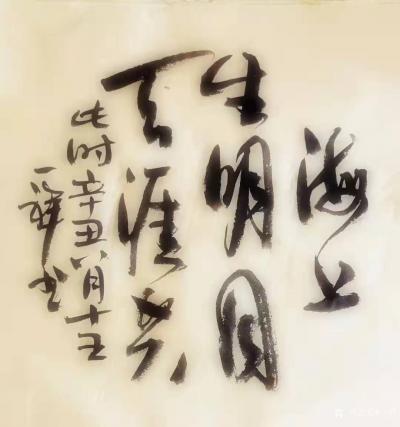 海上
生明月
天涯共
此时辛丑八月十五
书